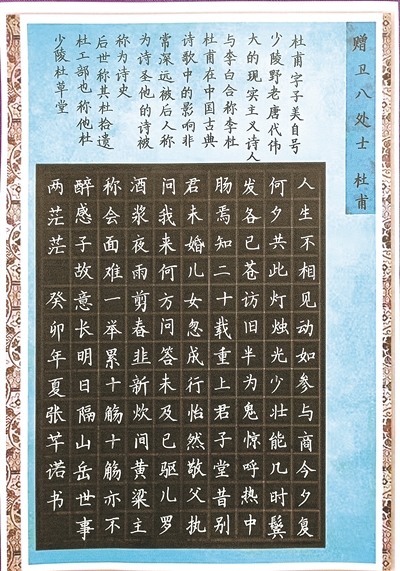 赠卫八处士 杜甫
杜甫字子美自号
少陵野老唐代伟
大的现实主义诗人
与李白合称李杜
杜甫在中国古典
诗歌中的影响非
常深远被后人称
为诗圣他的诗被
称为诗史
后世称其杜拾遗
杜工部也称他杜
少陵杜草堂
人生不相见动如参与商今夕复
何夕共此灯烛光少壮能几时鬓
发各已苍访旧半为鬼惊呼热中
肠焉知二十载重上君子堂昔别
君未婚儿女忽成行怡然敬父执
问我来何方问答未及已驱儿罗
酒浆夜雨剪春韭新炊间黄梁主
称会面难一举累十觞十觞亦不
醉感子故意长明日隔山岳世事
两茫茫 癸卯年夏张芊诺书